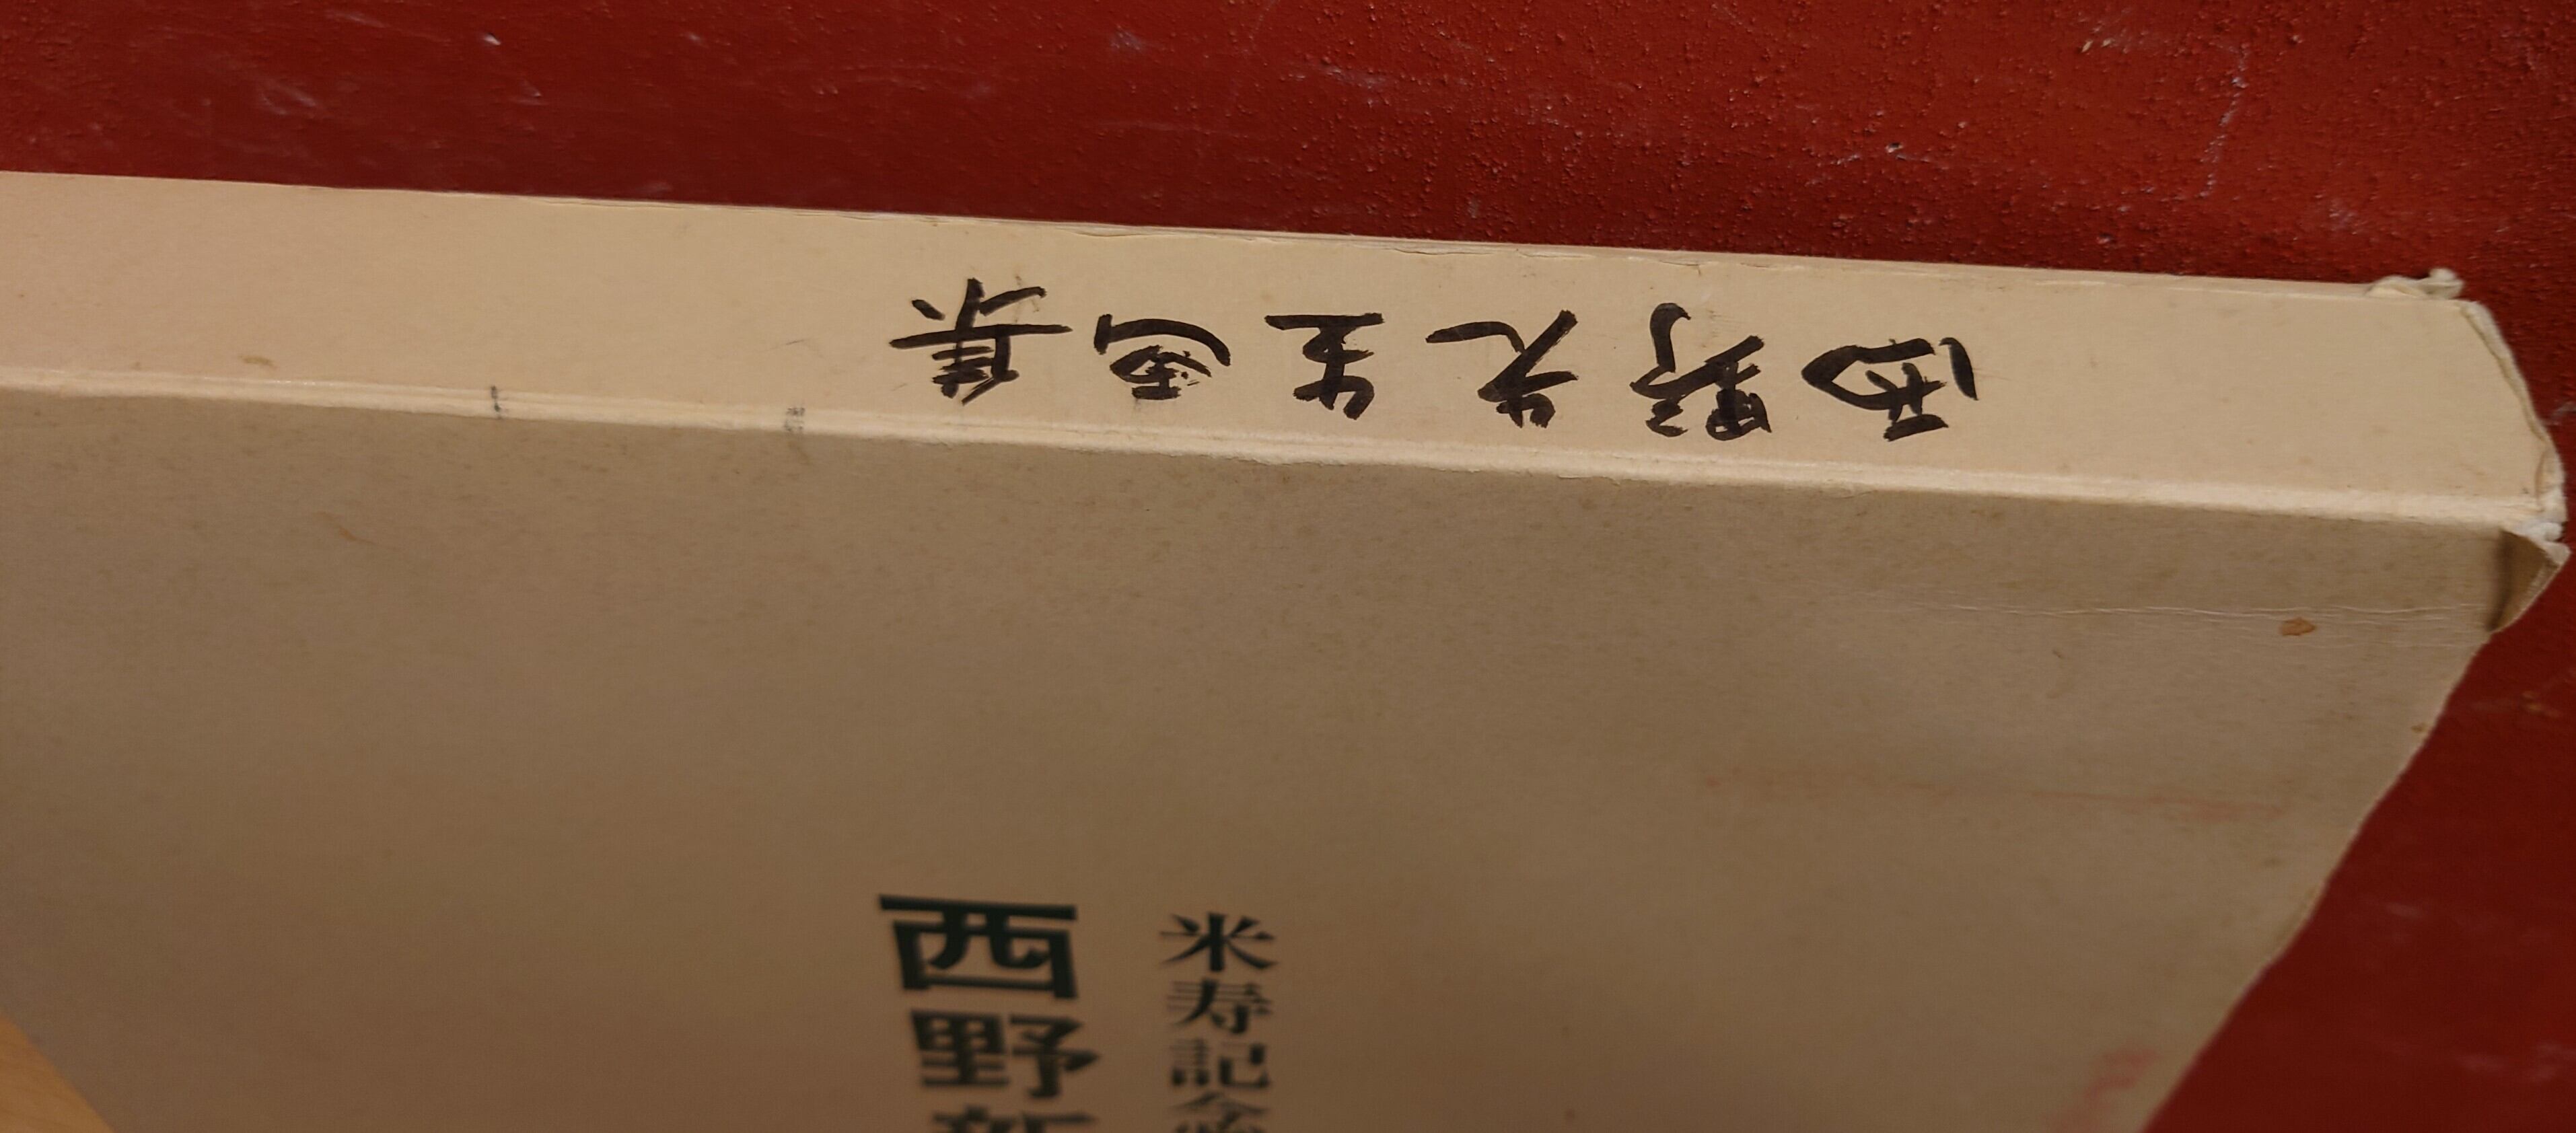 西野先生画集
米寿記念
西野新